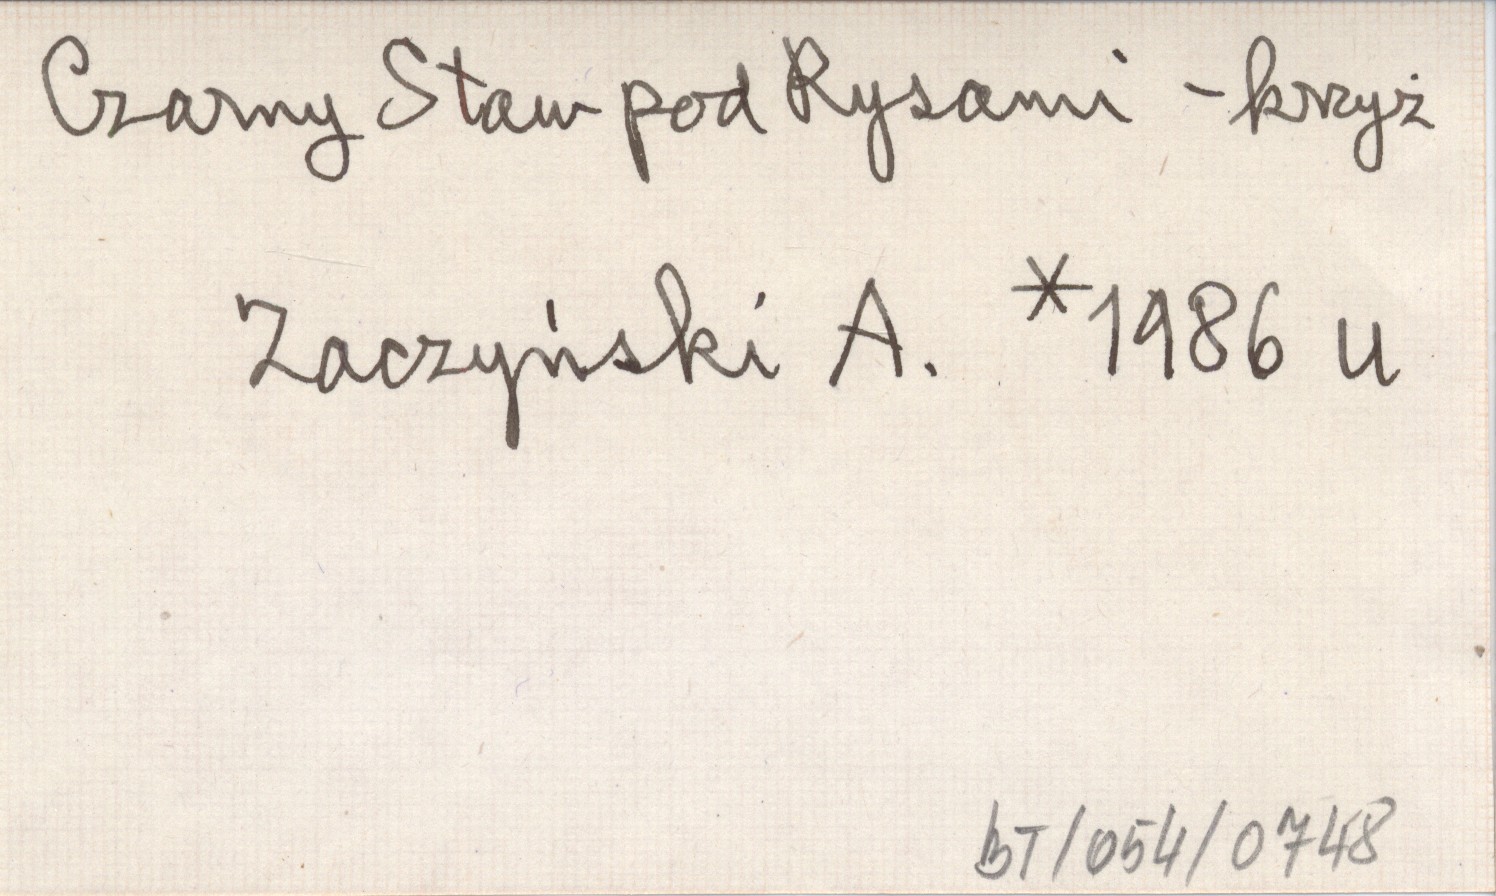 Czarny Staw pod Rysami - krzyż
Zaczyński A. *1986 u
bT/054/0748